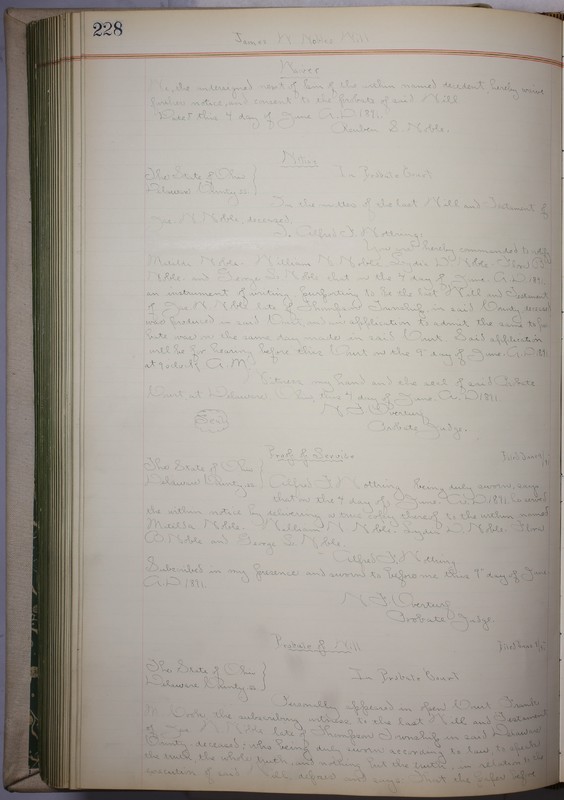 228
James N Nobles Will
Waiver
We, the undersigned next of kin of the within named decedent hereby waive
further notice, and consent to the probate of said Will
Dated this 4 day of June A.D. 1891.
Reuben S. Noble.
Notice
The State of Ohio
Delaware County, ss
In Probate Court
In the matter of the last Will and Testament of
N Noble, deceased
To Alfred F. Nothing:
You are hereby commanded to notify
Matilda Noble. William N Noble, D. Noble. B
Noble and George S Noble that on the 4 day of June A.D. 1891
an instrument of writing, purporting to be the last Will and Testament
of N Noble late of Thompson Township, in said County, deceased
was produced in said Court and an application to admit the same to pro
bate was on the same day made in said Court. Said application
will be for hearing before this Court on the 9" day of June. A.D. 1891
at 9 o'clock A.M.
Witness my hand and the seal of said Probate
Court at Delaware O this 4 day of June A.D. 1891.
Seal
Probate Judge.
Proof of Service
The State of Ohio
Delaware County, ss
Alfred F. Nothing being duly sworn, says
that on the 4 day of June A.D. 1891 he served
the within notice by delivering a true copy thereof to the within named
Matilda Noble. William N. Noble. D. Noble
B Noble and George S Noble.
Alfred F. Nothing
Subscribed in my presence and sworn to before me this 9" day of June
A.D. 1891
Probate Judge
Probate of Will
The State of Ohio
Delaware County, ss
In Probate Court
Personally appeared in open Court
the subscribing witness to the last Will and Testament
of N. Noble late of Thompson Township in said Delaware
County, deceased; who being duly sworn according to law to speak
the truth the whole truth, and nothing but the truth, in relation to the
execution of said Will, depose and says: That the paper before